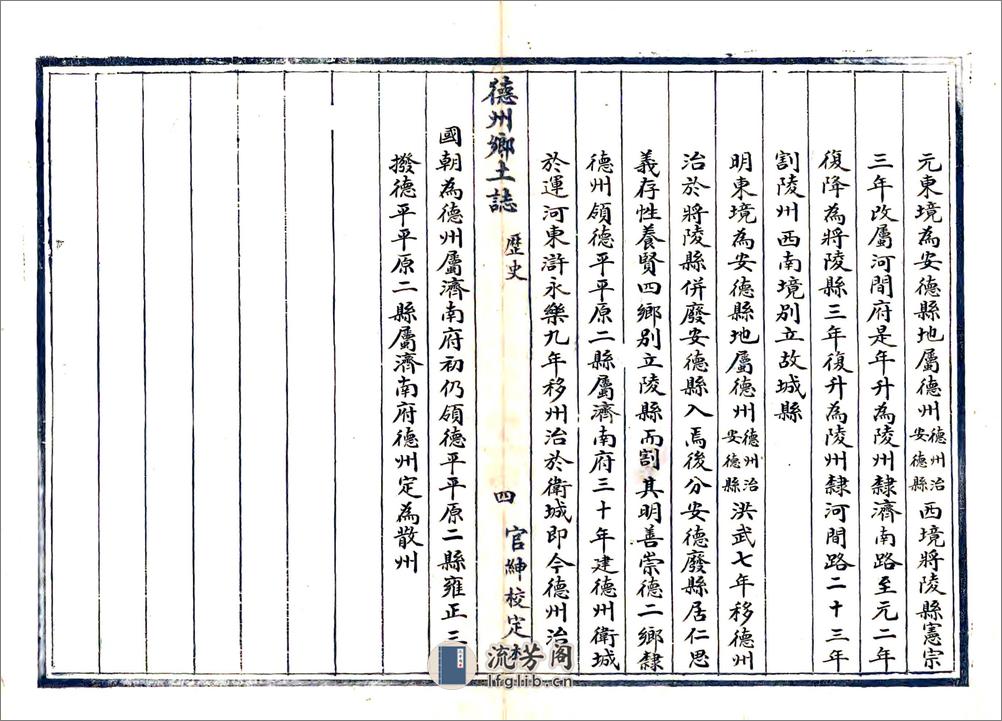 元東境為安德縣地屬德州德州治安德縣西境將陵縣憲宗
三年改屬河間府是年升為陵州隸濟南路至元二年
復降為將陵縣三年復升為陵州隸河間路二十三年
割陵州西南境別立故城縣
明東境為安德縣地屬德州德州治安德縣洪武七年移德州
治於將陵縣併廢安德縣入焉後分安德廢縣居仁思
義存性養賢四鄉別立陵縣而割其明善崇德二鄉隸
德州領德平平原二縣屬濟南府三十年建德州衛城
於運河東滸永樂九年移州治於衛城即今德州治
德州鄉土誌 歷史 四 官紳校定本
國朝為德州屬濟南府初仍領德平平原二縣雍正三
撥德平平原二縣屬濟南府德州定為散州
流芳阁
lfglib.cn